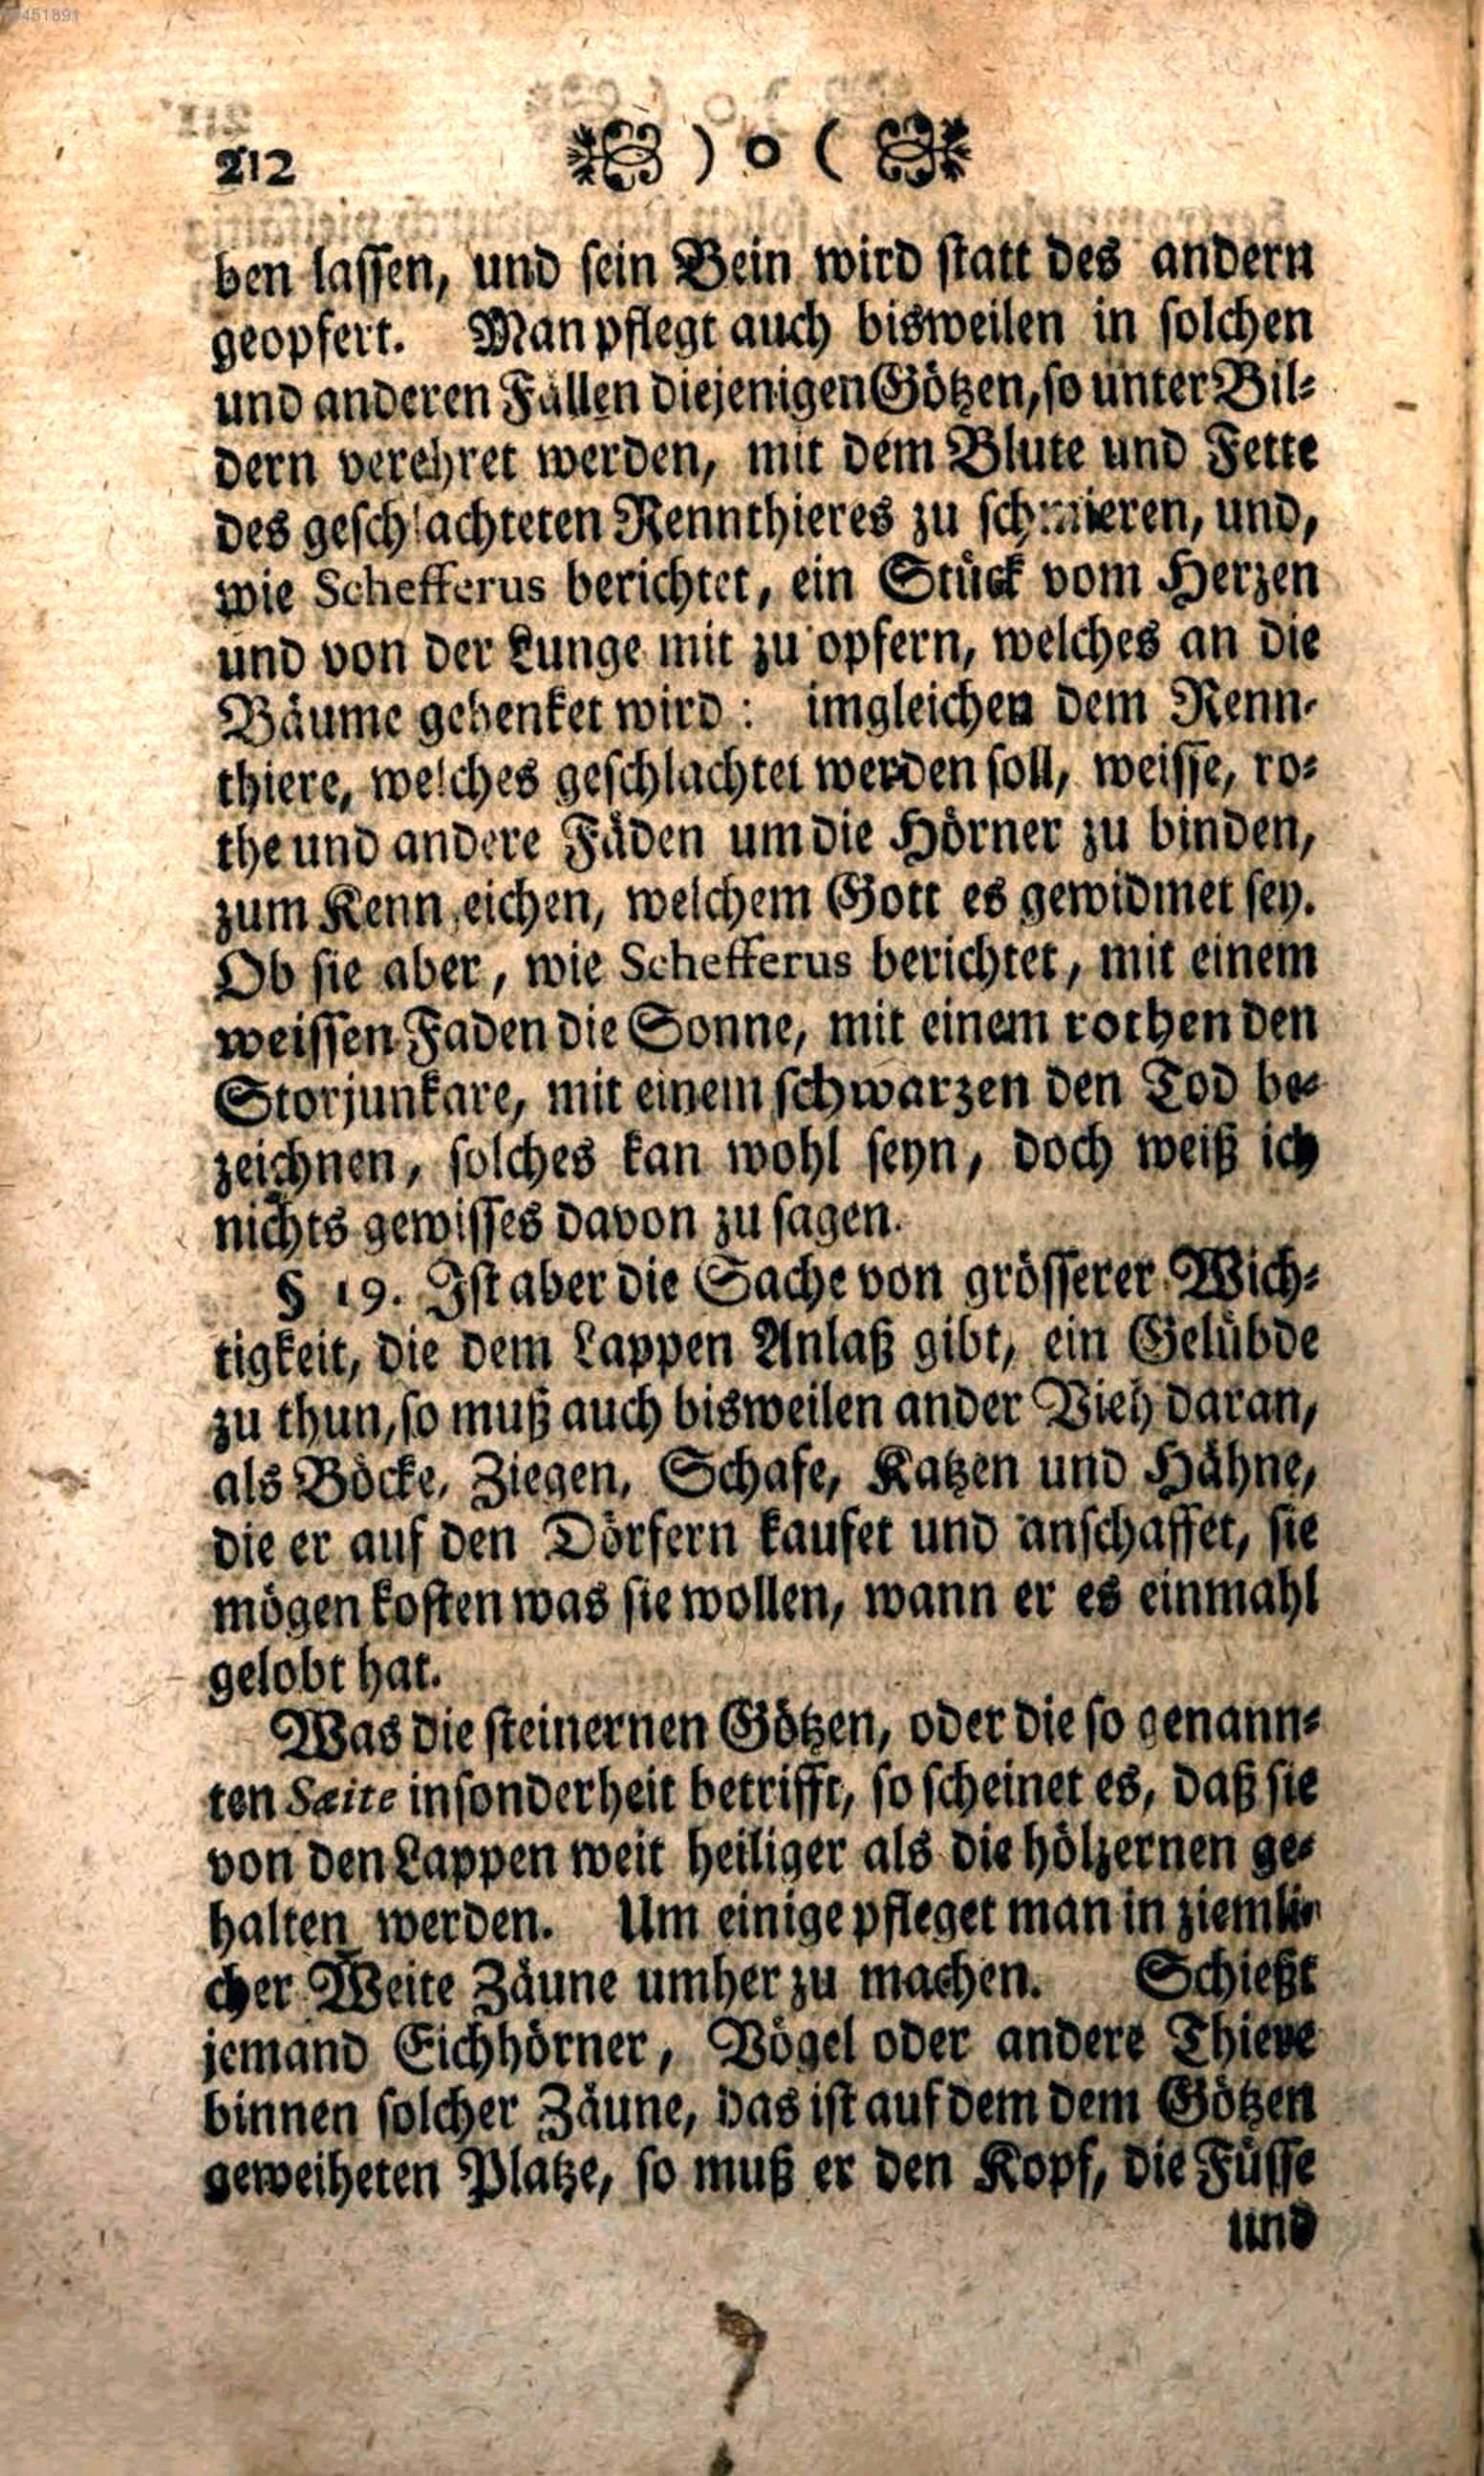 212 ) o (
ben lassen, und sein Bein wird statt des andern
geopfert. Man pflegt auch bisweilen in solchen
und anderen Fällen diejenigen Götzen, so unter Bil-
dern verehret werden, mit dem Blute und Fette
des geschlachteten Rennthieres zu schmieren, und,
wie Schefferus berichtet, ein Stück vom Herzen
und von der Lunge mit zu opfern, welches an die
Bäume gehenket wird: imgleichen dem Renn-
thiere, welches geschlachtet werden soll, weisse, ro-
the und andere Fäden um die Hörner zu binden,
zum Kennzeichen, welchem Gott es gewidmet sey.
Ob sie aber, wie Schefferus berichtet, mit einem
weissen Faden die Sonne, mit einem rothen den
Storjunkare, mit einem schwarzen den Tod be-
zeichnen, solches kan wohl seyn, doch weiß ich
nichts gewisses davon zu sagen.
§ 19. Ist aber die Sache von grösserer Wich-
tigkeit, die dem Lappen Anlaß gibt, ein Gelübde
zu thun, so muß auch bisweilen ander Vieh daran,
als Böcke, Ziegen, Schafe, Katzen und Hähne,
die er auf den Dörfern kaufet und anschaffet, sie
mögen kosten was sie wollen, wann er es einmahl
gelobt hat.
Was die steinernen Götzen, oder die so genann-
ten Saite insonderheit betrifft, so scheinet es, daß sie
von den Lappen weit heiliger als die hölzernen ge-
halten werden. Um einige pfleget man in ziemli-
cher Weite Zäune umher zu machen. Schießt
jemand Eichhörner, Vögel oder andere Thiere
binnen solcher Zäune, das ist auf dem dem Götzen
geweiheten Platze, so muß er den Kopf, die Füsse
und